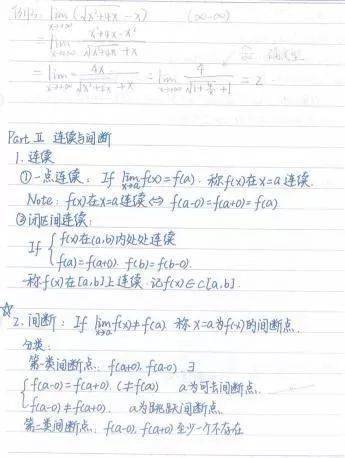 lim x→+∞ (√x²+4x - x) (∞-∞)
= lim x→+∞ x²+4x-x² / √x²+4x + x
= lim x→+∞ 4x / √x²+4x + x = lim x→+∞ 4 / √1+4/x +1 = 2
Part II 连续与间断
1. 连续
①一点连续: If lim x→a f(x)=f(a). 称f(x)在x=a连续.
Note: f(x)在x=a连续⇔ f(a-0)=f(a+0)=f(a)
②闭区间连续:
If { f(x)在(a,b)内处处连续
f(a)=f(a+0). f(b)=f(b-0).
称f(x)在[a,b]上连续. 记f(x)∈C[a,b].
☆ 2. 间断: If lim x→a f(x)≠f(a) 称x=a为f(x)的间断点.
分类:
第一类间断点: f(a+0). f(a-0). ∃
{ f(a-0)=f(a+0). (≠f(a)) a为可去间断点.
f(a-0)≠f(a+0). a为跳跃间断点.
第二类间断点: f(a-0), f(a+0)至少一个不存在